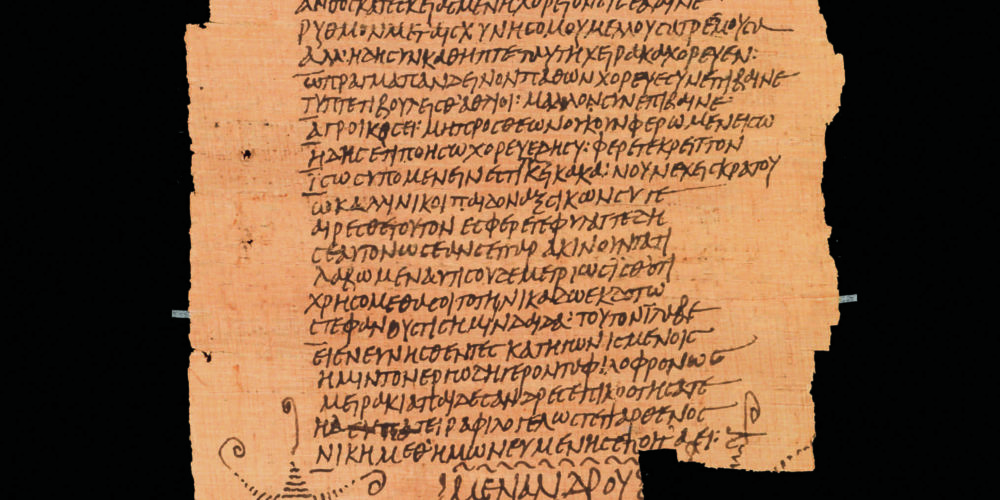 ΑΝΘΟΣΚΑΤΕΣΚΕΔΑΣΜΕΝΗΧΟΡΕΙΟΝΕΙΣΕΒΑΙΝΕ
ΡΥΘΜΟΝΜΕΤΑΙΣΧΥΝΗΣΟΜΟΥΜΕΛΛΟΥΣΑΤΡΕΜΟΥΣΑ
ΑΛΛΗΔΗΣΥΝΚΑΘΗΠΤΕΤΑΥΤΗΧΕΙΡΑΚΑΧΟΡΕΥΕΝ:
ΩΠΡΑΓΜΑΠΑΝΔΕΙΝΟΝΠΑΘΩΝΧΟΡΕΥΕΣΥΝΕΠΙΒΑΙΝΕ
ΤΥΠΤΕΤΙΒΟΥΛΕΣΘΑΘΛΙΟΙ: ΜΑΛΛΟΝΣΥΝΕΠΙΒΑΙΝΕ
ΑΓΡΟΙΚΟΣΕΙ: ΜΗΠΡΟΣΘΕΩΝΟΥΚΟΥΝΦΕΡΩΜΕΝΕΙΣΩ
ΗΔΗΣΕΤΙΠΟΗΣΩΧΟΡΕΥΕΔΗΣΥ: ΦΕΡΕΤΕΚΡΕΙΤΤΟΝ
ΙΣΩΣΥΠΟΜΕΝΕΙΝΕΣΤΙΚΕΙΚΑΚΑ: ΝΟΥΝΕΧΕΙΣΚΡΑΤΟΥ
ΩΚΑΛΛΙΝΙΚΟΙΠΑΙΔΟΝΑΞΣΙΚΩΝΣΥΓΕ
ΑΙΡΕΣΘΕΤΟΥΤΟΝΕΣΦΕΡΕΤΕΦΥΛΑΤΤΕΔΗ
ΣΕΑΥΤΟΝΩΣΕΑΝΣΕΤΙΠΑΡΑΚΙΝΟΥΝΤΑΤΙ
ΛΑΒΩΜΕΝΑΥΤΙΣΟΥΔΕΜΕΤΡΙΩΣΙΣΘΟΤΙ
ΧΡΗΣΟΜΕΘΑΣΟΙΤΟΤΗΝΙΚΑΔΩΕΚΔΟΤΩ
ΣΤΕΦΑΝΟΥΣΤΙΣΗΜΙΝΔΑΙΔΑ: ΤΟΥΤΟΝΙΛΑΒΕ
ΕΙΕΝΣΥΝΗΣΘΕΝΤΕΣ ΚΑΤΗΓΩΝΙΣΜΕΝΟΙΣ
ΗΜΙΝΤΟΝΕΡΓΩΔΗΓΕΡΟΝΤΑΦΙΛΟΦΡΟΝΩΣ
ΜΕΙΡΑΚΙΑΠΑΙΔΕΣΑΝΔΡΕΣΕΠΙΚΡΟΤΗΣΑΤΕ
ΗΔΕΥΠΑΤΕΙΡΑΦΙΛΟΓΕΛΩΣΤΕΠΑΡΘΕΝΟΣ
ΝΙΚΗΜΕΘΗΜΩΝΕΥΜΕΝΗΣΕΠΟΙΤΑΕΙ:
ΜΕΝΑΝΔΡΟΥ